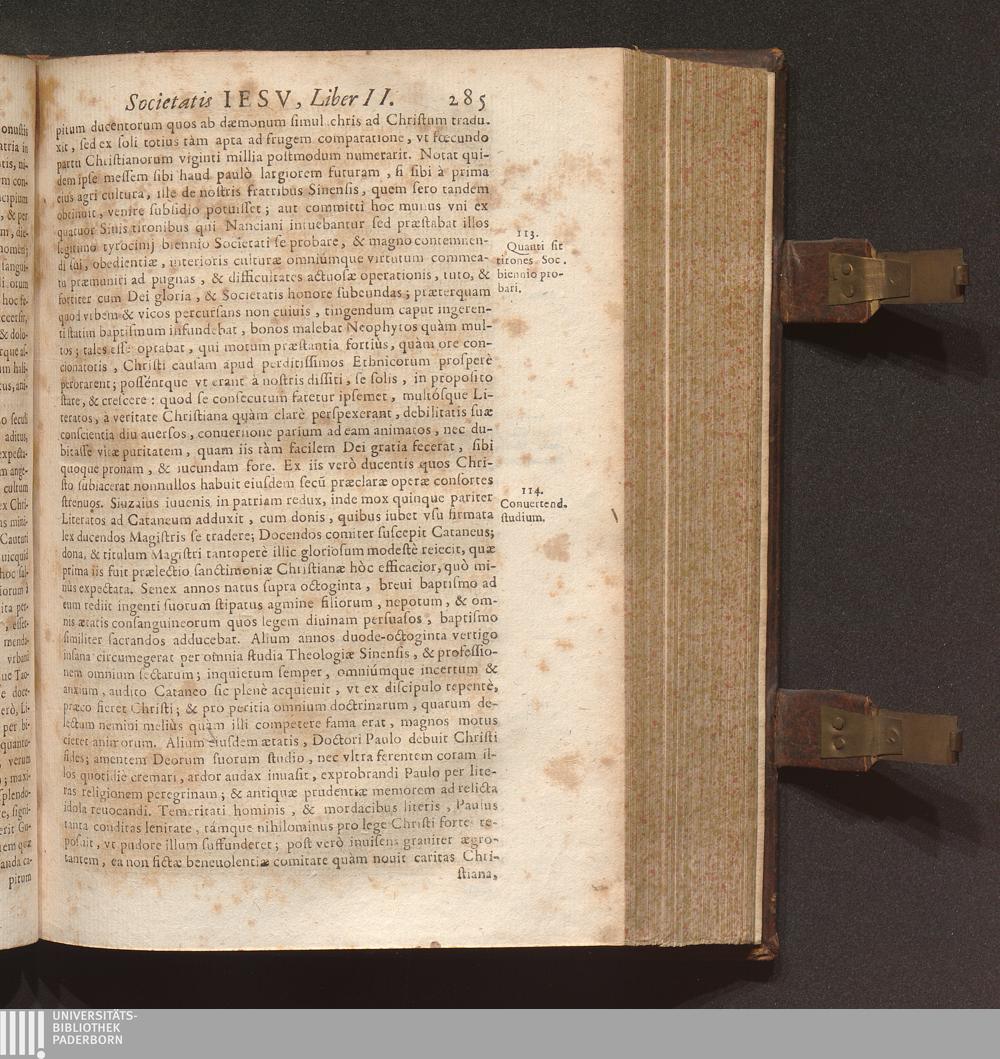 Societatis IESV, Liber II. 285
pitum ducentorum quos ab dæmonum simulachris ad Christum tradu-
xit, sed ex soli totius tàm apta ad frugem comparatione, vt fœcundo
partu Christianorum viginti millia postmodum numerarit. Notat qui-
dem ipse messem sibi haud paulò largiorem futuram, si sibi à prima
eius agri cultura, ille de nostris fratribus Sinensis, quem sero tandem
obtinuit, venire subsidio potuisset; aut committi hoc munus vni ex
quatuor Sinis tironibus qui Nanciani intuebantur sed præstabat illos
legitimo tyrocinij biennio Societati se probare, & magno contemnen-
di sui, obedientiæ, interioris culturæ omniúmque virtutum commea-
tu præmuniri ad pugnas, & difficultates actuosæ operationis, tutò, &
fortiter cum Dei gloria, & Societatis honore subeundas; præterquam
quod vrbem & vicos percursans non cuiuis, tingendum caput ingeren-
ti statim baptismum infundebat, bonos malebat Neophytos quàm mul-
tos; tales esse optabat, qui motum præstantia fortiùs, quàm ore con-
cionatoris, Christi causam apud perditissimos Ethnicorum prosperè
perorarent; posséntque vt erant à nostris dissiti, se solis, in proposito
stare, & crescere: quod se consecutum fatetur ipsemet, multósque Li-
teratos, à veritate Christiana quàm clarè perspexerant, debilitatis suæ
conscientia diu auersos, conuersione parium ad eam animatos, nec du-
bitasse vitæ puritatem, quam iis tàm facilem Dei gratia fecerat, sibi
quoque pronam, & iucundam fore. Ex iis verò ducentis quos Chri-
sto subiacerat nonnullos habuit eiusdem secũ præclaræ operæ consortes
strenuos. Siuzaius iuuenis in patriam redux, inde mox quinque pariter
Literatos ad Cataneum adduxit, cum donis, quibus iubet vsu firmata
lex ducendos Magistris se tradere; Docendos comiter suscepit Cataneus;
dona, & titulum Magistri tantoperè illic gloriosum modestè reiecit, quæ
prima iis fuit prælectio sanctimoniæ Christianæ hòc efficacior, quò mi-
nùs expectata. Senex annos natus supra octoginta, breui baptismo ad
eum rediit ingenti suorum stipatus agmine filiorum, nepotum, & om-
nis ætatis consanguineorum quos legem diuinam persuasos, baptismo
similiter sacrandos adducebat. Alium annos duode-octoginta vertigo
insana circumegerat per omnia studia Theologiæ Sinensis, & professio-
nem omnium sectarum; inquietum semper, omniúmque incertum &
anxium, audito Cataneo sic plenè acquieuit, vt ex discipulo repentè,
præco fieret Christi; & pro peritia omnium doctrinarum, quarum de-
lectum nemini meliùs quàm illi competere fama erat, magnos motus
cieret animorum. Alium eiusdem ætatis, Doctori Paulo debuit Christi
fides; amentem Deorum suorum studio, nec vltra ferentem coram il-
los quotidiè cremari, ardor audax inuasit, exprobrandi Paulo per lite-
ras religionem peregrinam; & antiquæ prudentiæ memorem ad relicta
idola reuocandi. Temeritati hominis, & mordacibus literis, Paulus
tanta conditas lenitate, támque nihilominus pro lege Christi fortes re-
posuit, vt pudore illum suffunderet; post verò inuisens grauiter ægro-
tantem, ea non fictæ beneuolentiæ comitate quàm nouit caritas Chri-
stiana,
113.
Quanti sit
tirones Soc.
biennio pro-
bari.
114.
Conuertend.
studium.
onustis
atria in
m con-
cipium
, & per
nomen;
sangui-
hoc fe-
& dolo-
rque al-
o seculi
aditus,
expecta-
m ange-
cultum
ex Chri-
Caututi
uicquid
hoc sal-
ita per-
menda-
vrbani
e doce-
erò, Li-
per bi-
quanto-
verum
; maxi-
splendo-
e, signi-
erit Gu-
em quæ
anda ca-
pitum
UNIVERSITÄTS-
BIBLIOTHEK
PADERBORN